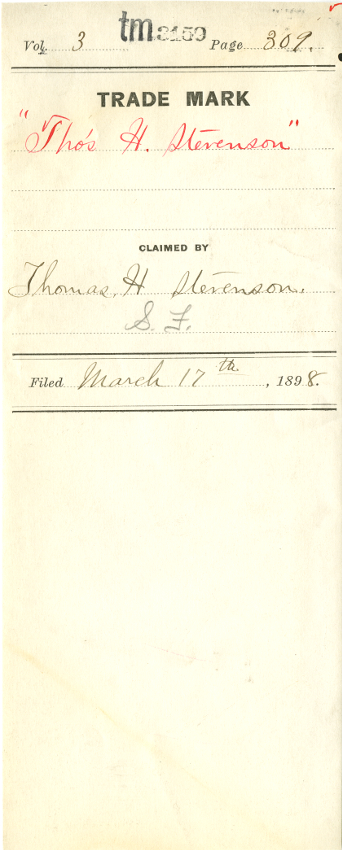 tm 3159
Vol. 3 Page 309.
TRADE MARK
"Tho's H. Stevenson"
CLAIMED BY
Thomas H Stevenson.
S. F.
Filed March 17th , 1898.